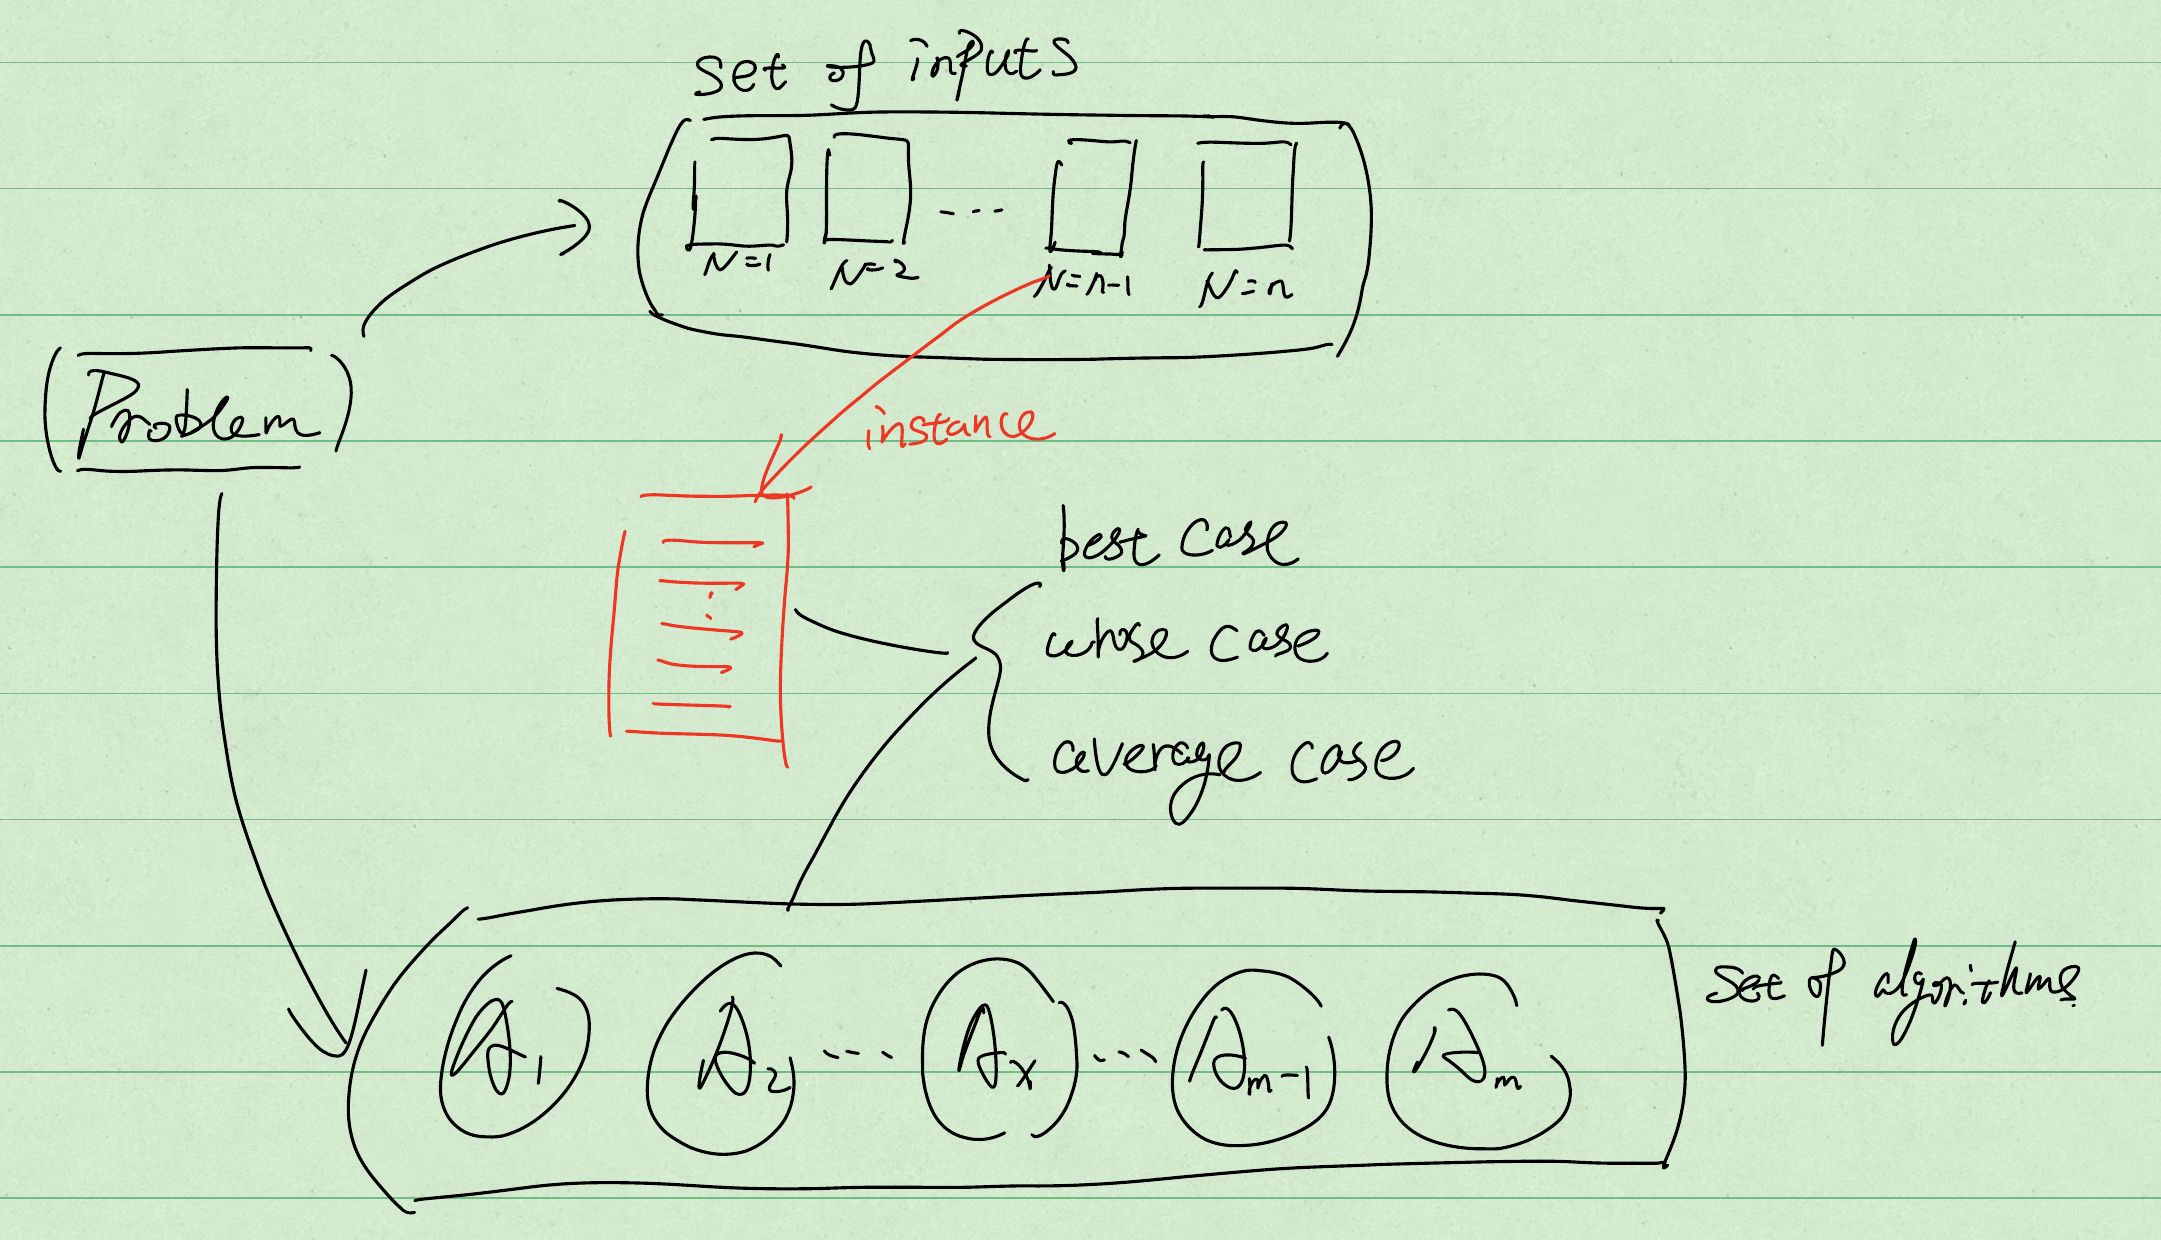 set of inputs
N=1 N=2 ... N=n-1 N=n
Problem
instance
best case
whose case
average case
A1 A2 ... Ax ... Am-1 Am
set of algorithms